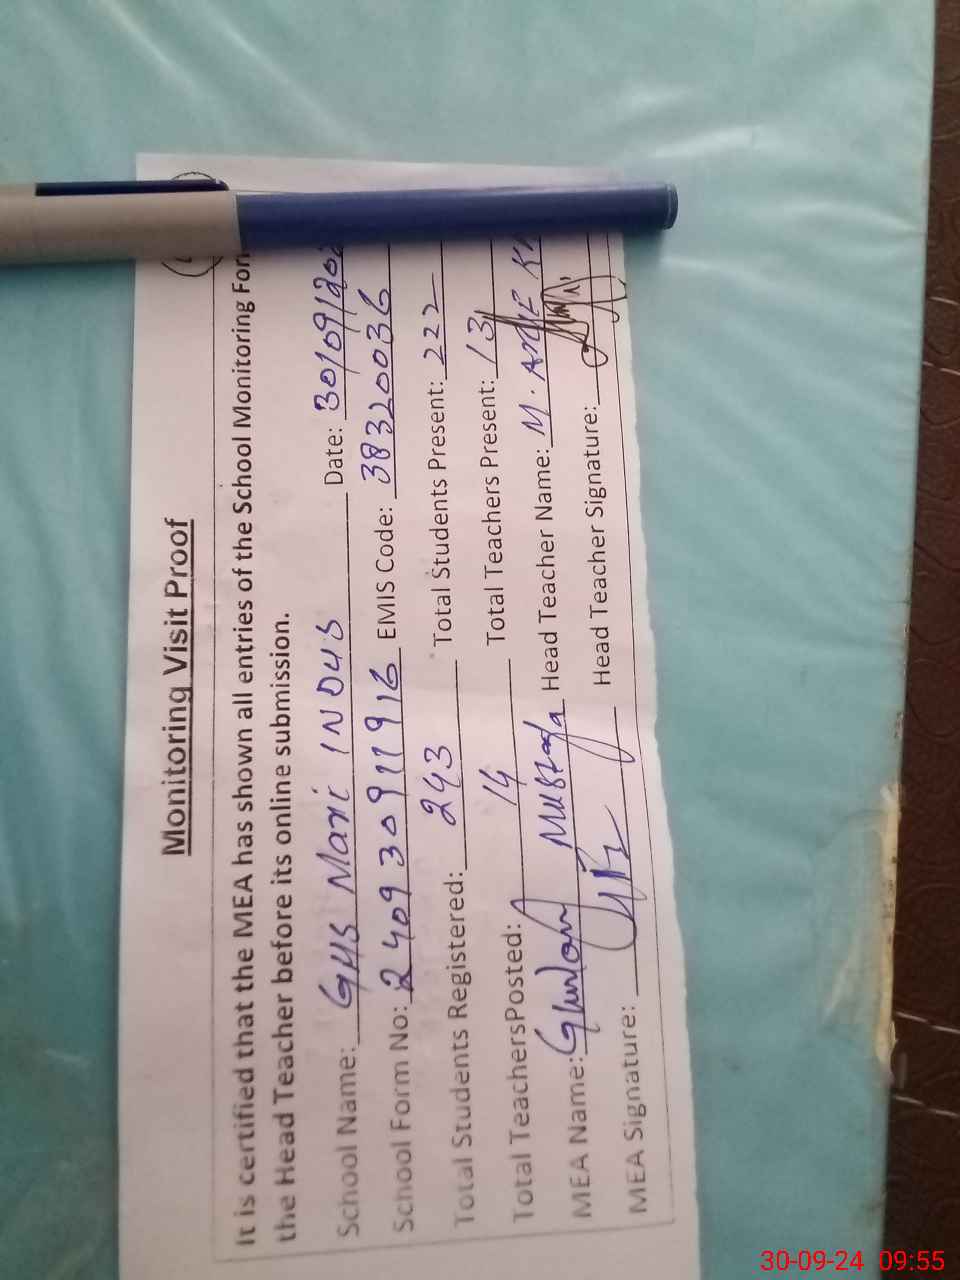 Monitoring Visit Proof
It is certified that the MEA has shown all entries of the School Monitoring For
the Head Teacher before its online submission.
School Name: GHS Mari INDUS Date: 30/09/202
School Form No: 240930911916 EMIS Code: 38320036
Total Students Registered: 243 Total Students Present: 222
Total TeachersPosted: 14 Total Teachers Present: 13
MEA Name: Ghulam Mustafa Head Teacher Name: M.
MEA Signature: Head Teacher Signature:
30-09-24 09:55